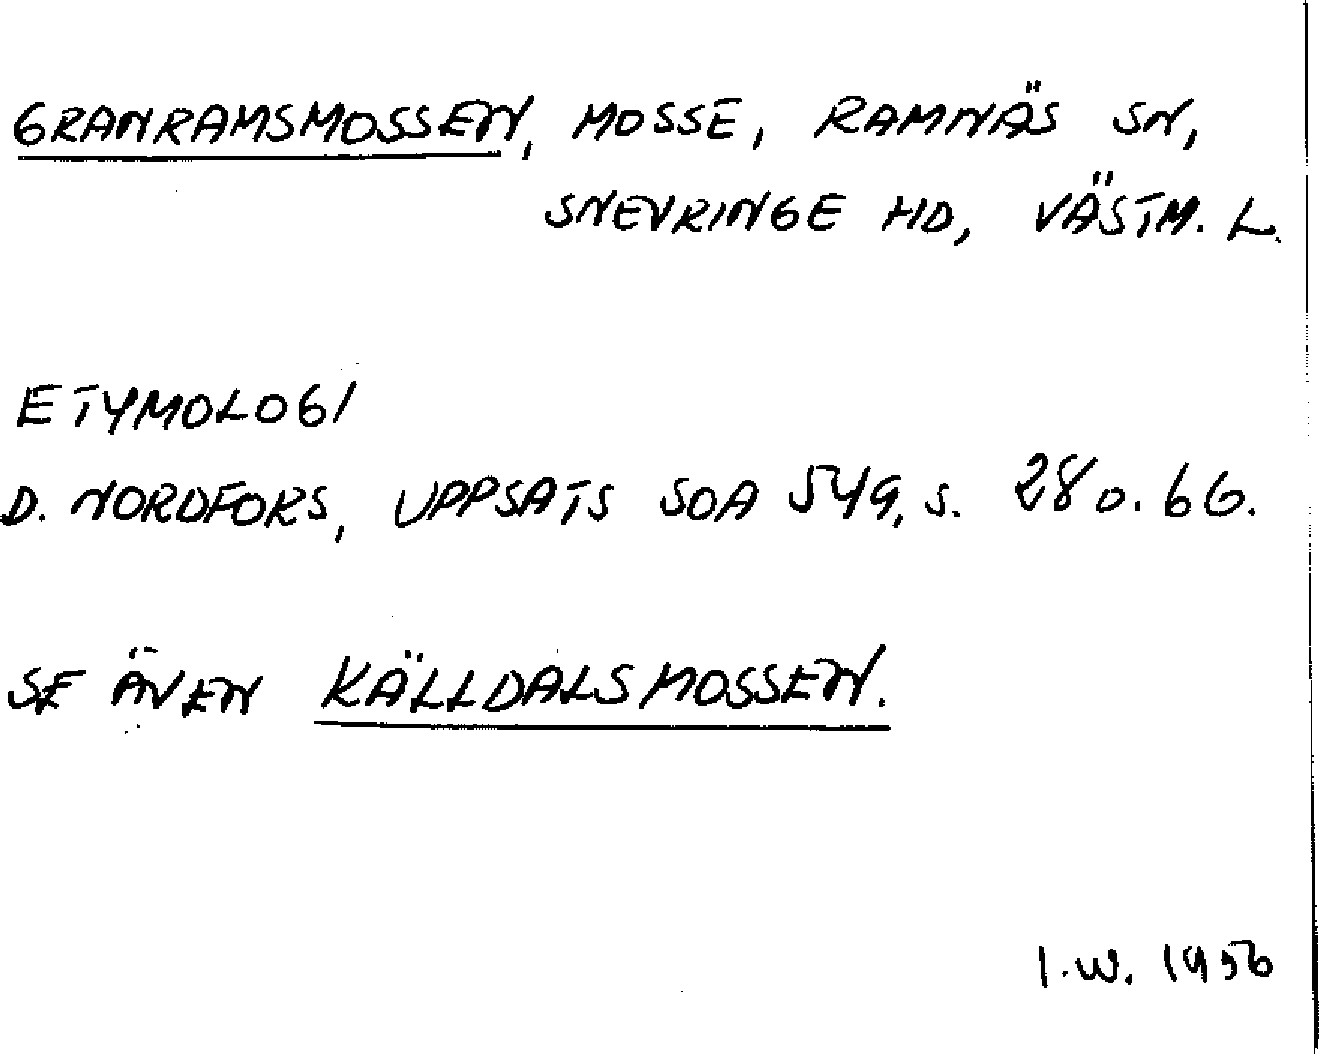 GRANRAMSMOSSEN, MOSSE, RAMNÄS SN,
SNEVRINGE HD, VÄSTM. L.
ETYMOLOGI
D. NORDFORS, UPPSATS SOA 549, S. 28 o. 66.
SE ÄVEN KÄLLDALSMOSSEN.
I.W. 1956